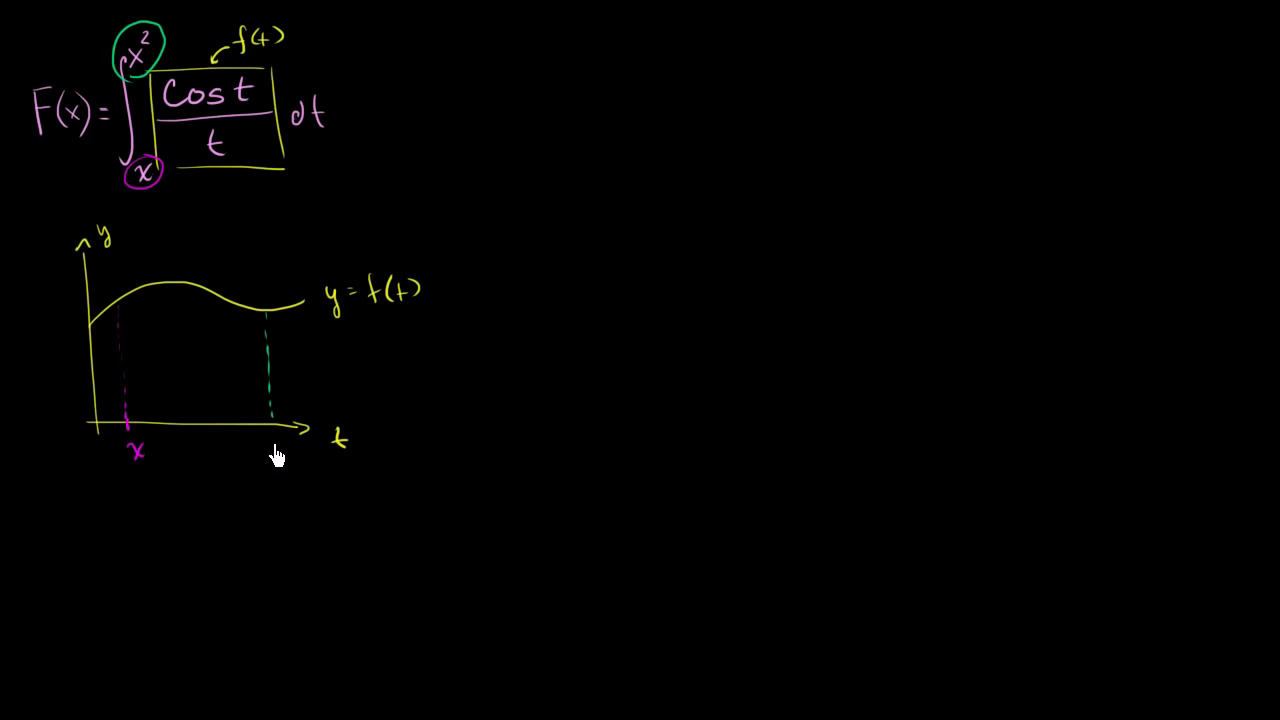 F(x) = ∫ₓ^(x²) (cos t)/t dt
f(t)
y
y = f(t)
t
x